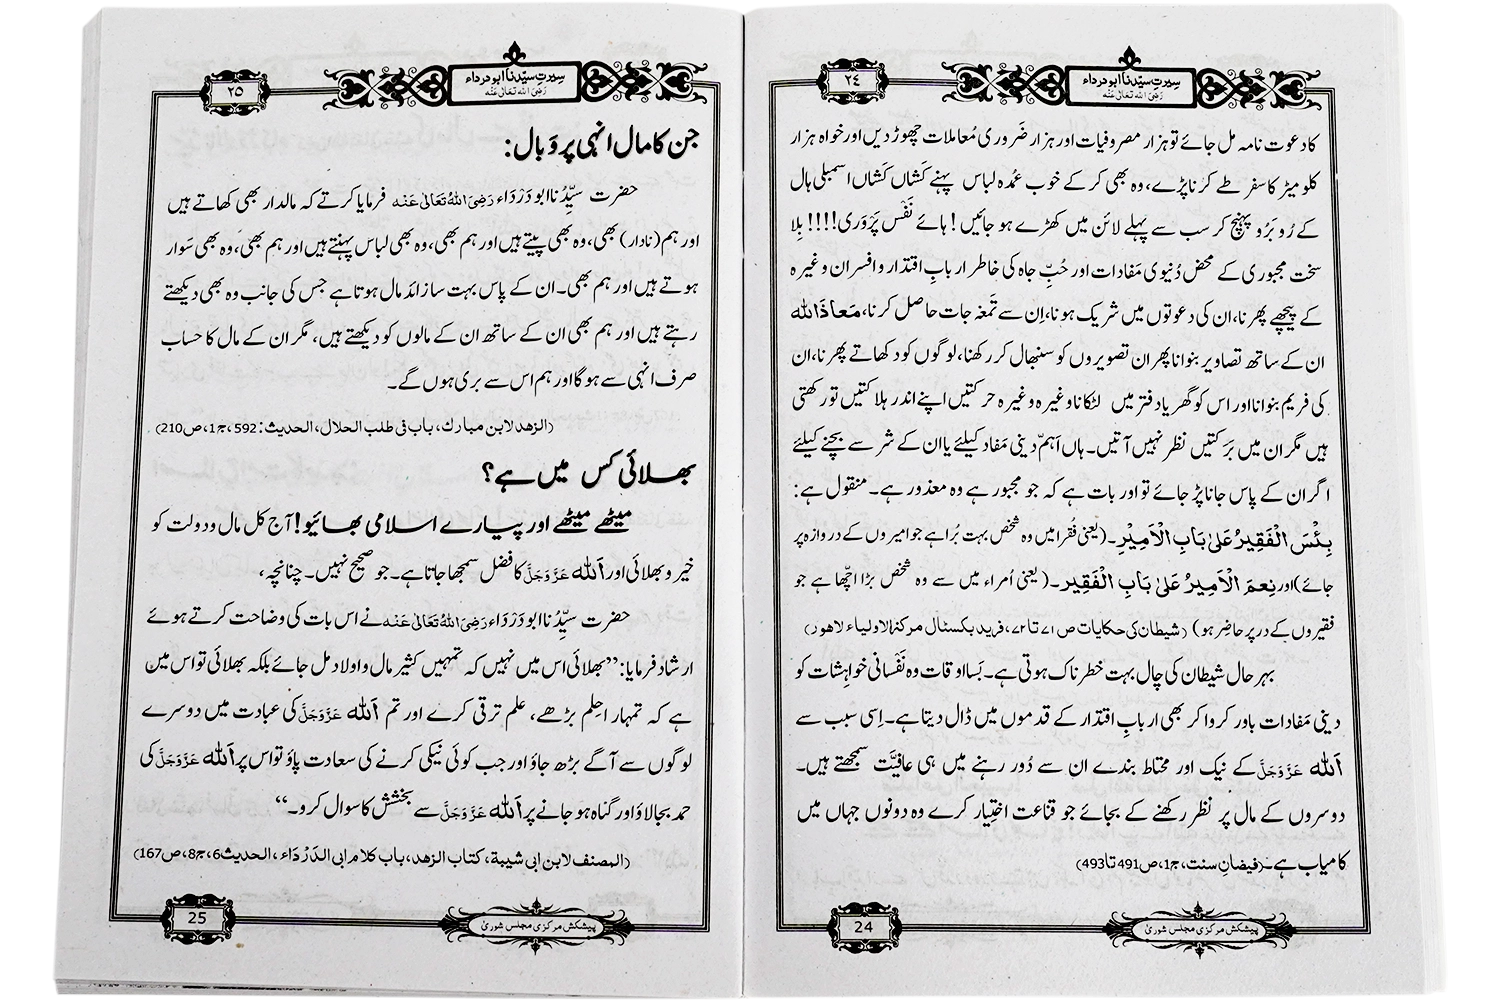 ٢٤
سِیرتِ سیّدنا ابو درداء
رَضِیَ اللہُ تَعَالٰی عَنْہُ
کا دعوت نامہ مل جائے تو ہزار مصروفیات اور ہزار ضَروری مُعاملات چھوڑ دیں اور خواہ ہزار
کلو میٹر کا سفر طے کرنا پڑے، وہ بھی کر کے خوب عمدہ لباس پہنے کَشاں کَشاں اسمبلی ہال
کے رُو بَرُو پہنچ کر سب سے پہلے لائن میں کھڑے ہو جائیں! ہائے نَفْس پَرْوَری!!!! بِلا
سخت مجبوری کے محض دُنیوی مَفادات اور حُبِّ جاہ کی خاطر اربابِ اقتدار و افسران وغیرہ
کے پیچھے پھرنا، ان کی دعوتوں میں شریک ہونا، اِن سے تَمغہ جات حاصل کرنا، مَعاذَ اللہ
ان کے ساتھ تصاویر بنوانا پھر ان تصویروں کو سنبھال کر رکھنا، لوگوں کو دکھاتے پھرنا، ان
کی فریم بنوانا اور اس کو گھر یا دفتر میں لٹکانا وغیرہ وغیرہ حرکتیں اپنے اندر ہلاکتیں تو رکھتی
ہیں مگر ان میں بَرَکتیں نظر نہیں آتیں۔ ہاں اَہمّ دینی مَفاد کیلئے یا ان کے شر سے بچنے کیلئے
اگر ان کے پاس جانا پڑ جائے تو اور بات ہے کہ جو مجبور ہے وہ معذور ہے۔ منقول ہے:
بِئْسَ الْفَقِیْرُ عَلٰی بَابِ الْاَمِیْرِ۔ (یعنی فُقرا میں وہ شخص بہت بُرا ہے جو امیروں کے دروازہ پر
جائے) اور نِعمَ الْاَمِیْرُ عَلٰی بَابِ الْفَقِیر۔ (یعنی اُمراء میں سے وہ شخص بڑا اچّھا ہے جو
فقیروں کے در پر حاضِر ہو) (شیطان کی حکایات ص ۷۱ تا ۷۲، فرید بکسٹال مرکز الاولیاء لاہور)
بہر حال شیطان کی چال بہت خطرناک ہوتی ہے۔ بَسا اوقات وہ نَفْسانی خواہِشات کو
دینی مَفادات باور کروا کر بھی اربابِ اقتدار کے قدموں میں ڈال دیتا ہے۔ اِسی سبب سے
اللہ عَزَّوَجَلَّ کے نیک اور محتاط بندے ان سے دُور رہنے میں ہی عافیَّت سمجھتے ہیں۔
دوسروں کے مال پر نظر رکھنے کے بجائے جو قناعت اختیار کرے وہ دونوں جہاں میں
کامیاب ہے۔ (فیضانِ سنت، ج1، ص491 تا 493)
پیشکش مرکزی مجلس شوریٰ
24
٢٥
سِیرتِ سیّدنا ابو درداء
رَضِیَ اللہُ تَعَالٰی عَنْہُ
جن کا مال انہی پر وَبال:
حضرت سیِّدُنا ابو دَرْدَاء رَضِیَ اللہُ تَعَالٰی عَنْہ فرمایا کرتے کہ مالدار بھی کھاتے ہیں
اور ہم (نادار) بھی، وہ بھی پیتے ہیں اور ہم بھی، وہ بھی لباس پہنتے ہیں اور ہم بھی، وہ بھی سَوار
ہوتے ہیں اور ہم بھی۔ ان کے پاس بہت سا زائد مال ہوتا ہے جس کی جانب وہ بھی دیکھتے
رہتے ہیں اور ہم بھی ان کے ساتھ ان کے مالوں کو دیکھتے ہیں، مگر ان کے مال کا حساب
صرف انہی سے ہوگا اور ہم اس سے بری ہوں گے۔
(الزھد لابن مبارک، باب فی طلب الحلال، الحدیث: 592، ج1، ص210)
بھلائی کس میں ہے؟
میٹھے میٹھے اور پیارے اسلامی بھائیو! آج کل مال و دولت کو
خیر و بھلائی اور اللہ عَزَّوَجَلَّ کا فضل سمجھا جاتا ہے۔ جو صحیح نہیں۔ چنانچہ،
حضرت سیِّدُنا ابو دَرْدَاء رَضِیَ اللہُ تَعَالٰی عَنْہ نے اس بات کی وضاحت کرتے ہوئے
ارشاد فرمایا: ”بھلائی اس میں نہیں کہ تمہیں کثیر مال و اولاد مل جائے بلکہ بھلائی تو اس میں
ہے کہ تمہارا حِلم بڑھے، علم ترقی کرے اور تم اللہ عَزَّوَجَلَّ کی عبادت میں دوسرے
لوگوں سے آگے بڑھ جاؤ اور جب کوئی نیکی کرنے کی سعادت پاؤ تو اس پر اللہ عَزَّوَجَلَّ کی
حمد بجا لاؤ اور گناہ ہو جانے پر اللہ عَزَّوَجَلَّ سے بخشش کا سوال کرو۔“
(المصنف لابن ابی شیبة، کتاب الزھد، باب کلام ابی الدَرْدَاء، الحدیث6، ج8، ص167)
پیشکش مرکزی مجلس شوریٰ
25